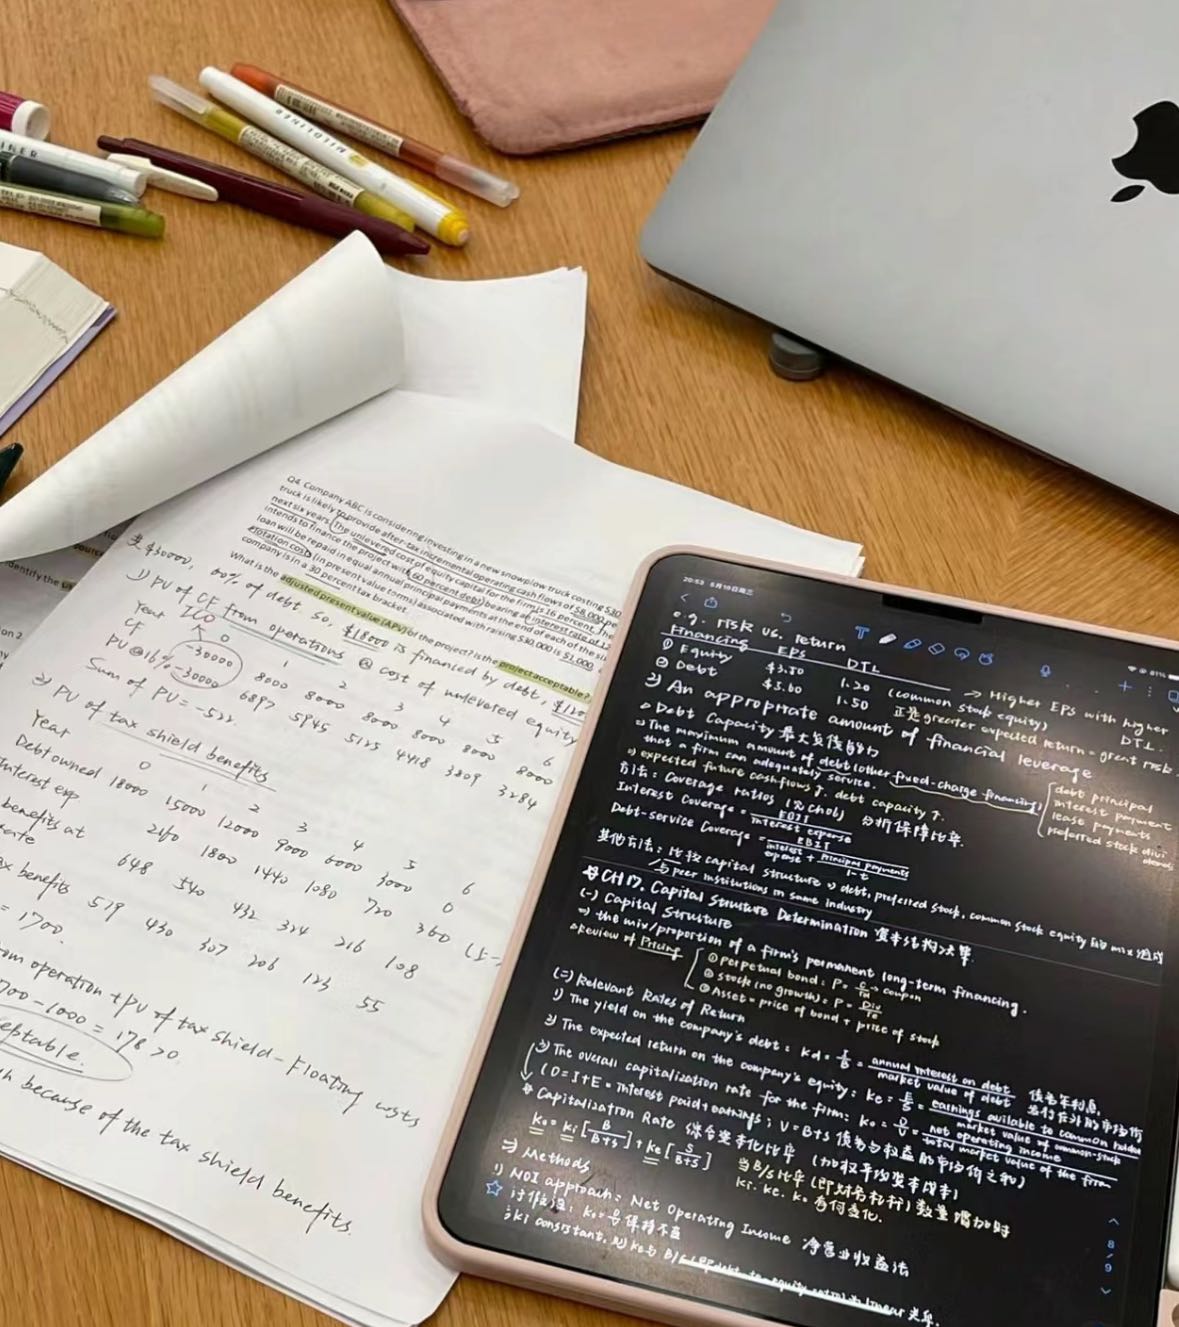 MILDLINER
Q4. Company ABC is considering investing in a new snowplow truck costing $30
truck is likely to provide after-tax incremental operating cash flows of $8,000 pe
next six years. The unlevered cost of equity capital for the firm is 16 percent. The
intends to finance the project with 60 percent debt bearing an interest rate of 12
loan will be repaid in equal annual principal payments at the end of each of the six
flotation costs (in present value terms) associated with raising $30,000 is $1,000
company is in a 30 percent tax bracket.
What is the adjusted present value (APV) of the project? Is the project acceptable?
$30000, 60% of debt. So, $18000 is financed by debt, $120
1) PV of CF from operations @ cost of unlevered equity
ICO
Year 0 1 2 3 4 5 6
CF -30000 8000 8000 8000 8000 8000 8000
PV@16% -30000 6897 5945 5125 4418 3809 3284
Sum of PV = -522
2) PV of tax shield benefits
Year 0 1 2 3 4 5 6
Debt owned 18000 15000 12000 9000 6000 3000 0
Interest exp 2160 1800 1440 1080 720 360
benefits at 648 540 432 324 216 108
rate
x benefits 579 430 307 206 123 55
= 1700.
om operation + PV of tax shield - Floating costs
700 - 1000 = 178 > 0
eptable.
gh because of the tax shield benefits.
20:53 5月10日周三
81%
e.g. risk vs. return
Financing EPS DTL
① Equity $3.50 1.20 (common stock equity) → Higher EPS with higher DTL.
② Debt $5.60 1.50 正是greater expected return = great risk.
2) An appropriate amount of financial leverage
Debt Capacity 最大负债能力
⇒ The maximum amount of debt (other fixed-charge financing)
that a firm can adequately service.
debt principal
interest payment
lease payments
preferred stock divi
dends
⇒ expected future cashflows ↑. debt capacity ↑.
方法: Coverage ratios (见Ch06) 分析保障比率.
Interest Coverage = EBIT / interest expense
Debt-service Coverage = EBIT / interest expense + principal payments / 1-t
其他方法: 比较capital structure ⇒ debt, preferred stock, common stock equity 的 mix 组成
与peer institutions in same industry
# CH 17. Capital Structure Determination 资本结构决策
(一) Capital Structure
⇒ the mix/proportion of a firm's permanent long-term financing.
review of Pricing
① Perpetual bond: P = → coupon
② stock (no growth): P = Div
③ Asset = price of bond + price of stock
(二) Relevant Rates of Return
1) The yield on the company's debt: Kd = I/B = annual interest on debt / market value of debt
2) The expected return on the company's equity: Ke = E/S = earnings available to common holders / market value of common-stock
3) The overall capitalization rate for the firm: Ko = O/V = net operating income / total market value of the firm
(O = I+E = Interest paid + earnings; V = B+S 债务与权益的市场价之和)
Capitalization Rate 综合资本化比率 (加权平均资本成本)
Ko = Ki [B/B+S] + Ke [S/B+S] 当B/S比率(即财务杠杆)数量增加时
Ki. Ke. Ko 有何变化.
Methods
1) NOI approach: Net Operating Income 净营业收益法
8/9